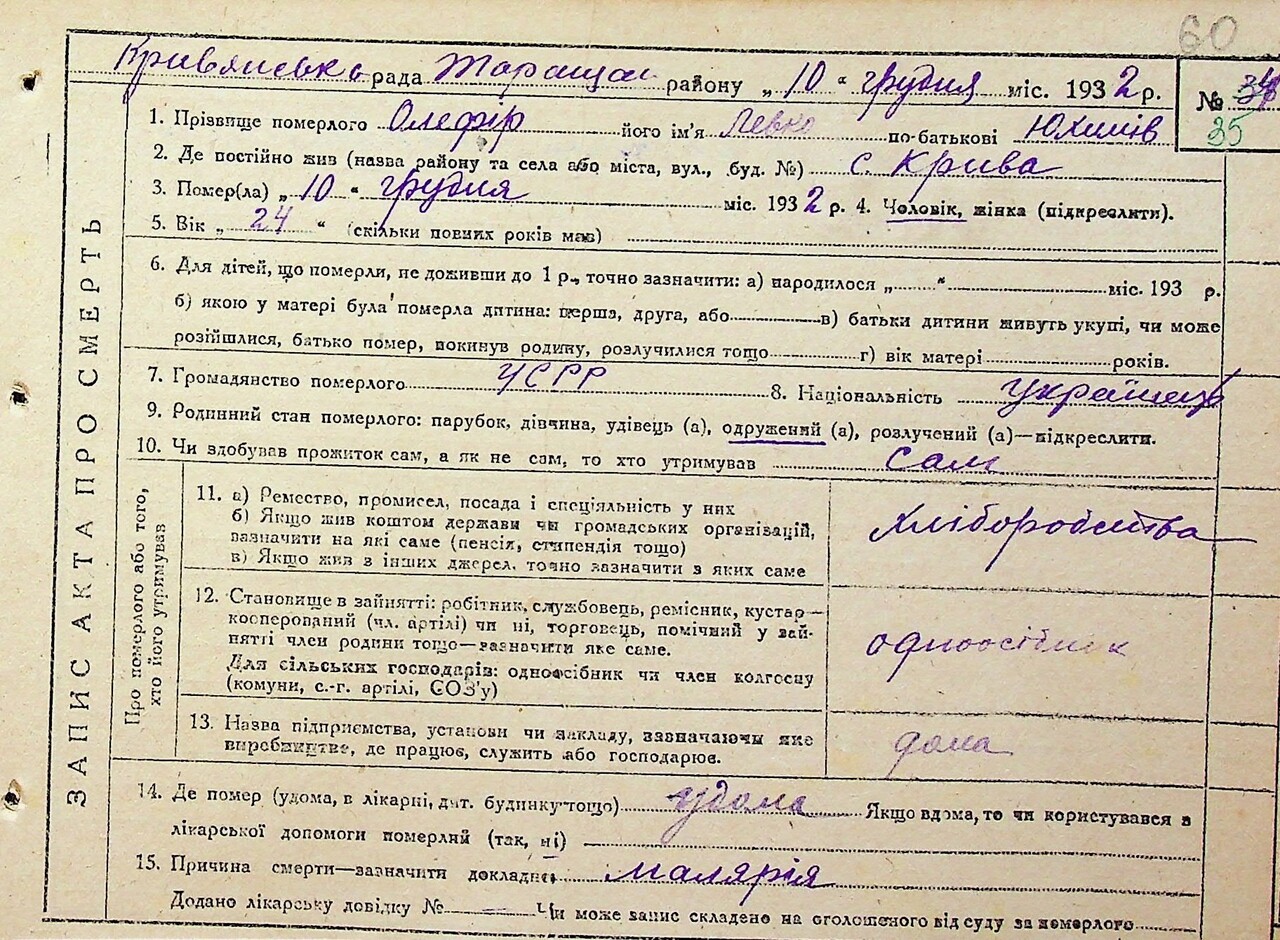 60
Кривянська рада Таращан району „ 10 “ грудня міс. 1932 р.
№ 34
35
1. Прізвище померлого Олефір його ім'я Левко по-батькові Юхимів
2. Де постійно жив (назва району та села або міста, вул., буд. №) с. Крива
3. Помер(ла) „ 10 “ грудня міс. 1932 р. 4. Чоловік, жінка (підкреслити).
5. Вік „ 24 “ (скільки повних років мав)
6. Для дітей, що померли, не доживши до 1 р., точно зазначити: а) народилося „ “ міс. 193 р.
б) якою у матері була померла дитина: перша, друга, або в) батьки дитини живуть укупі, чи може
розійшлися, батько помер, покинув родину, розлучилися тощо г) вік матері років.
7. Громадянство померлого УСРР 8. Національність українець
9. Родинний стан померлого: парубок, дівчина, удівець (а), одружений (а), розлучений (а)—підкреслити.
10. Чи здобував прожиток сам, а як не сам, то хто утримував сам
ЗАПИС АКТА ПРО СМЕРТЬ
Про померлого або того,
хто його утримував
11. а) Ремество, промисел, посада і спеціяльність у них
б) Якщо жив коштом держави чи громадських організацій,
зазначити на які саме (пенсія, стипендія тощо)
в) Якщо жив з інших джерел, точно зазначити з яких саме
хліборобства
12. Становище в зайнятті: робітник, службовець, ремісник, кустар—
кооперований (чл. артілі) чи ні, торговець, помічний у зай-
нятті член родини тощо—зазначити яке саме.
Для сільських господарів: одноосібник чи член колгоспу
(комуни, с.-г. артілі, СОЗ'у)
одноосібник
13. Назва підприємства, установи чи закладу, зазначаючи яке
виробництво, де працює, служить або господарює.
дома
14. Де помер (удома, в лікарні, дит. будинку тощо) удома Якщо вдома, то чи користувався з
лікарської допомоги померлий (так, ні)
15. Причина смерти—зазначити докладно малярія
Додано лікарську довідку № — Чи може запис складено на оголошеного від суду за померлого